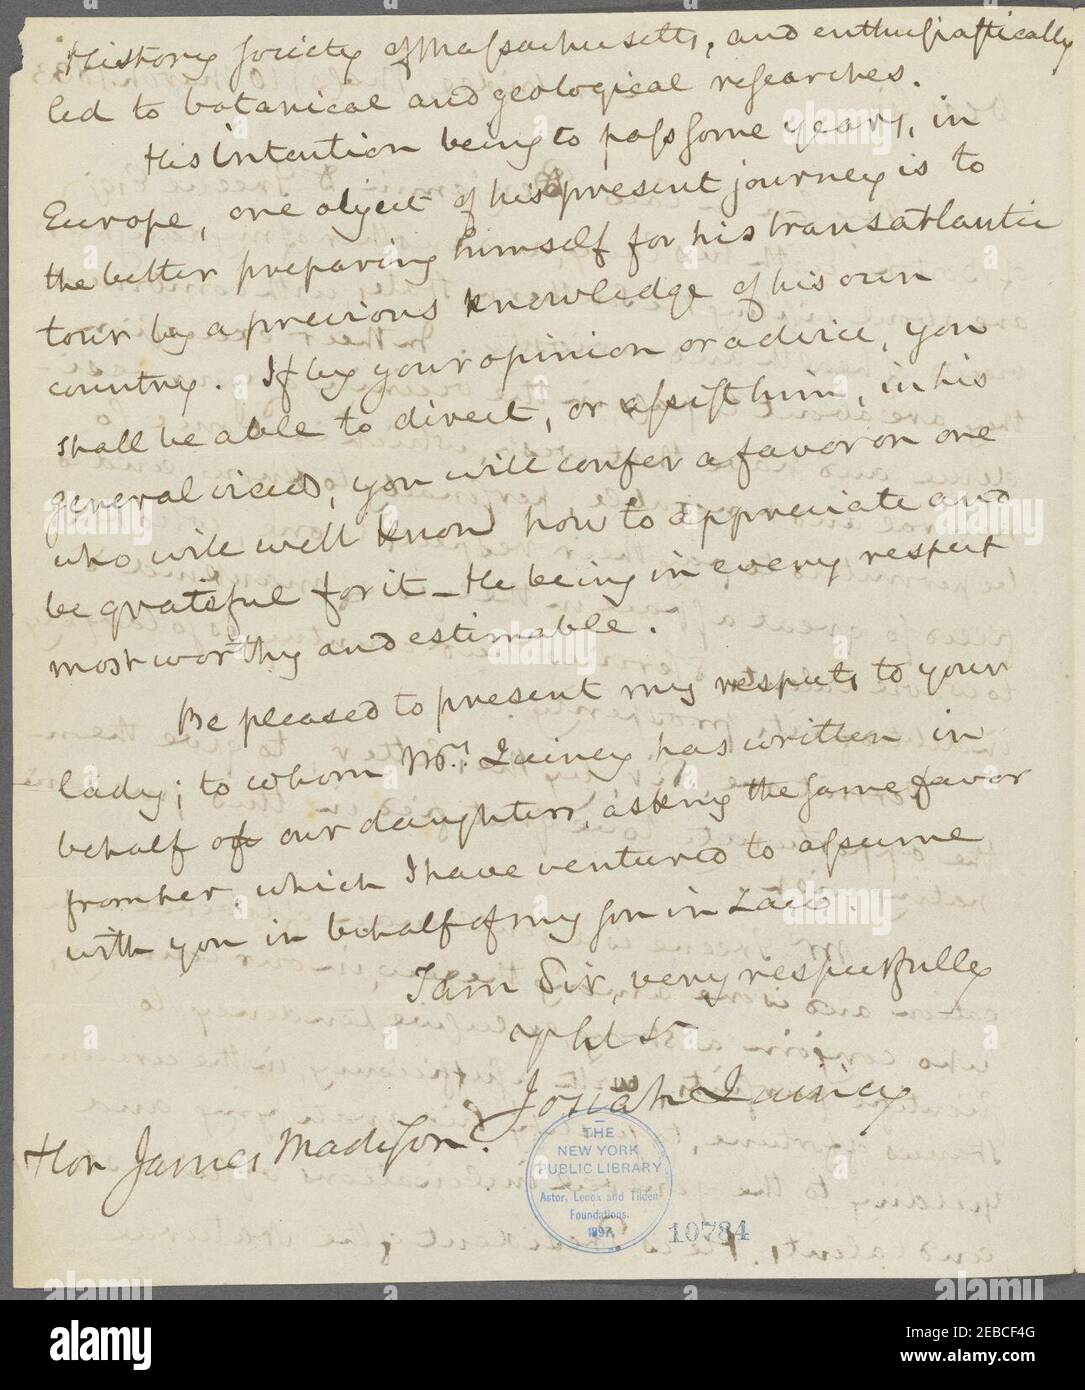 History Society of Massachusetts, and enthusiastically
led to botanical and geological researches.
His intention being to pass some years, in
Europe, one object of his present journey is to
the better preparing himself for his transatlantic
tour by a previous knowledge of his own
country. If by your opinion or advice, you
shall be able to direct, or assist him, in his
general views, you will confer a favor on one
who will well know how to appreciate and
be grateful for it – He being in every respect
most worthy and estimable.
Be pleased to present my respects to your
lady; to whom Mrs. Quincy has written in
behalf of our daughters, asking the same favor
from her, which I have ventured to assume
with you in behalf of my son in Law.
I am Sir, very respectfully
Josiah Quincy
Hon James Madison.
THE
NEW YORK
PUBLIC LIBRARY
Astor, Lenox and Tilden
Foundations.
1897.
10784
alamy
Image ID: 2EBCF4G
www.alamy.com